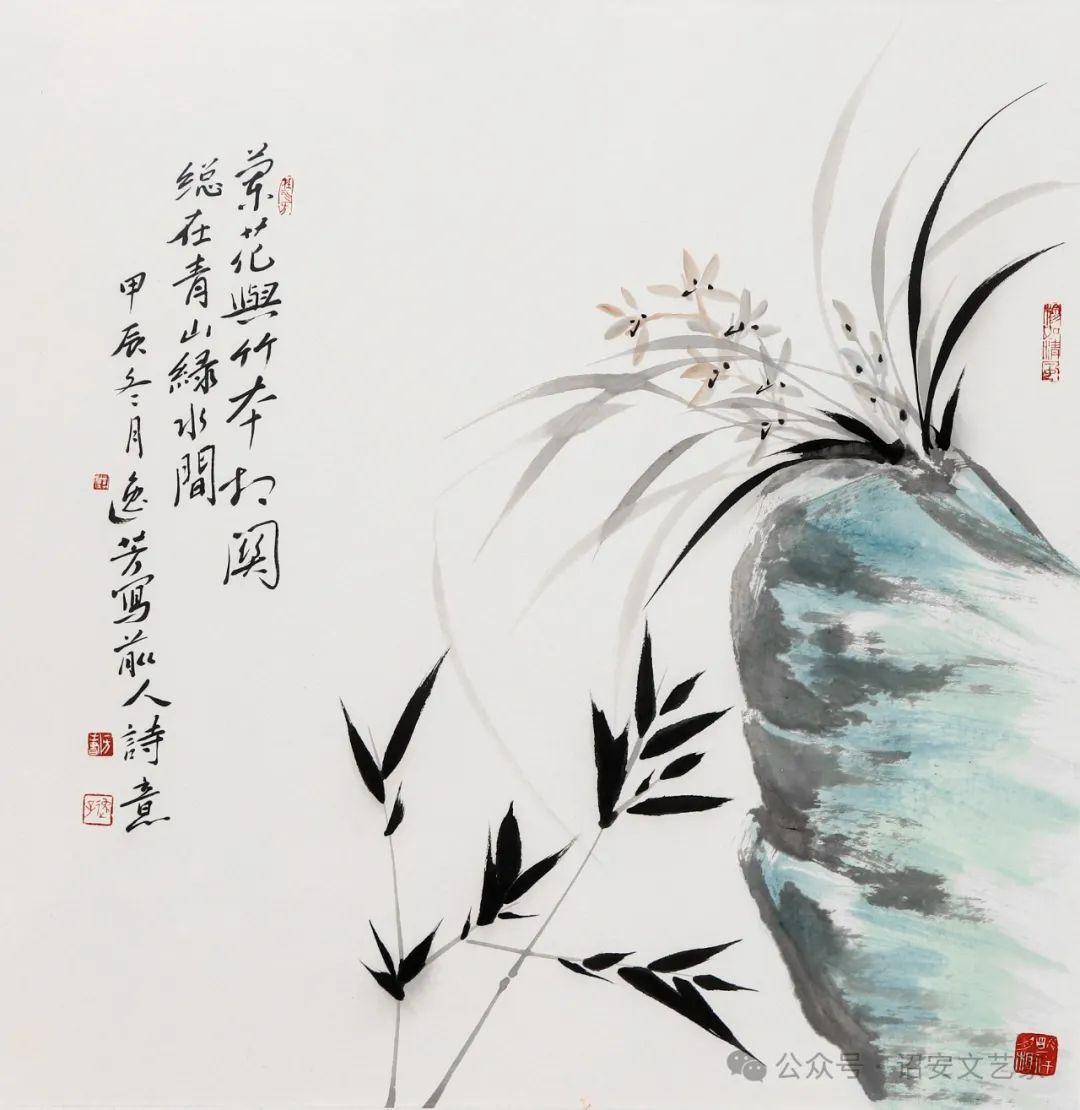 蘭花與竹本相關
總在青山綠水間
甲辰冬月逸芳寫前人詩意
公众号·诏安文艺家